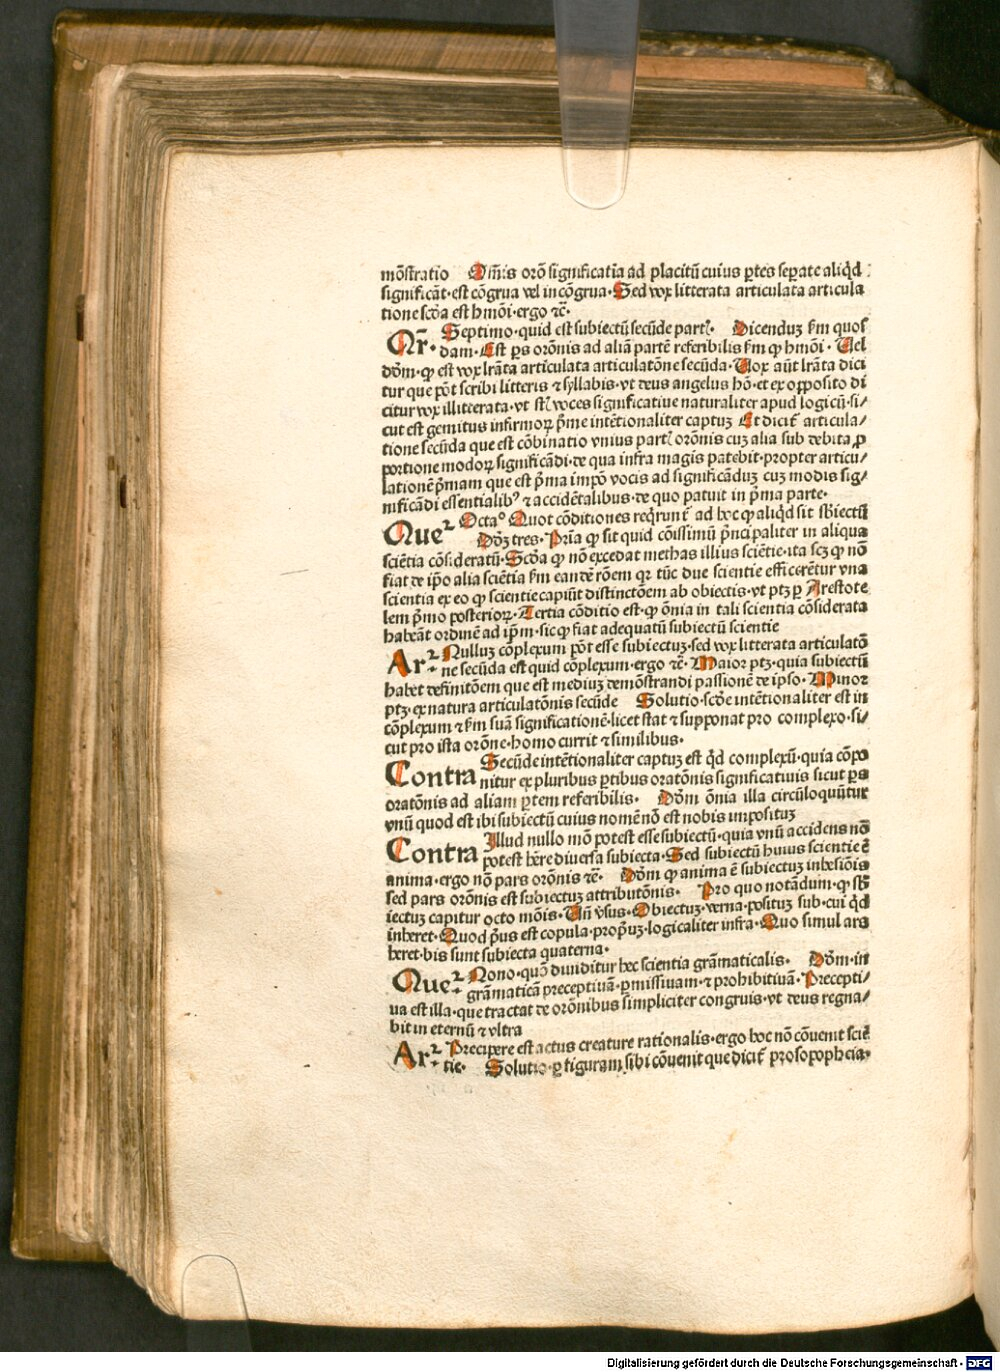 mōſtratio Om̄is orō ſignificatīa ad placitū cuius ꝑtes ſeꝑate aliq̄d
ſignificāt·eſt cōgrua vel incōgrua·Sed vox litterata articulata articula
tione ſcďa eſt hmōi·ergo ⁊c̄·
Qr̄· Septimo·quid eſt ſubiectū ſecūde part͛· Dicenduꝫ ẜm quoſ
dam·Eſt ꝑs orōnis ad aliā partē referibilis ẜm ꝙ hmōi· Uel
dōm·ꝙ eſt vox lrāta articulata articulatōne ſecūda·Uox aūt lrāta dici
tur que pōt ſcribi litteris ⁊ ſyllabis·vt deus angelus hō·et ex oppoſito di
citur vox illitterata·vt ſt͛ voces ſignificatiue naturaliter apud logicū·ſi/
cut eſt gemitus infirmoꝝ p̄me intētionaliter captuꝫ Et dicit̄ articula/
tione ſecūda que eſt cōbinatio vnius part͛ orōnis cuꝫ alia ſub debita ꝓ
portione modoꝝ ſignificādi·de qua infra magis patebit·propter articu/
lationē p̄mam que eſt p̄ma impō vocis ad ſignificāduꝫ cuꝫ modis ſig/
nificādi eſſentialibꝰ ⁊ accidētalibus·de quo patuit in p̄ma parte·
Queꝛ Octaᵒ Quot cōditiones req̄runt̄ ad hoc ꝙ aliq̄d ſit ſbiectū
Dōꝫ tres·Pria ꝙ ſit quid cōiſſimū p̄ncipaliter in aliqua
ſciētia cōſideratū·Scďa ꝙ nō excedat methas illius ſciētie·ita ſcꝫ ꝙ nō
fiat de ip̄o alia ſciētia ẜm eandē rōem qꝛ tūc due ſcientie efficerētur vna
ſcientia ex eo ꝙ ſcientie capiūt diſtinctōem ab obiectis·vt ptꝫ ꝑ Areſtote
lem p̄mo poſterioꝝ·Tertia cōditio eſt·ꝙ ōnia in tali ſcientia cōſiderata
habeāt ordinē ad ip̄m·ſic ꝙ fiat adequatū ſubiectū ſcientie
Arꝛ· Nulluꝫ cōplexum pōt eſſe ſubiectuꝫ·ſed vox litterata articulatō
ne ſecūda eſt quid cōplexum·ergo ⁊c̄·Maior ptꝫ·quia ſubiectū
habet definitōem que eſt mediuꝫ demōſtrandi paſſionē de ipſo·Minor
ptꝫ·ex natura articulatōnis ſecūde Solutio·ſcďe intētionaliter eſt in
cōplexum ⁊ ẜm ſuā ſignificationē·licet ſtat ⁊ ſupponat pro complexo·ſi/
cut pro iſta orōne·homo currit ⁊ ſimilibus·
Contra Secūde intētionaliter captuꝫ eſt q̄d complexū·quia cōpo
nitur ex pluribus ꝑtibus oratōnis ſignificatiuis ſicut ꝑs
oratōnis ad aliam ꝑtem referibilis· Dōm ōnia illa circūloquūtur
vnū quod eſt ibi ſubiectū cuius nomē nō eſt nobis impoſituꝫ
Contra Illud nullo mō poteſt eſſe ſubiectū·quia vnū accidens nō
poteſt hēre diuerſa ſubiecta·Sed ſubiectū huius ſcientie ē
anima·ergo nō pars orōnis ⁊c̄· Dōm ꝙ anima ē ſubiectuꝫ inheſiōis
ſed pars orōnis eſt ſubiectuꝫ attributōnis· Pro quo notādum·ꝙ ſb
iectuꝫ capitur octo mōis·Uñ v̄ſus·Obiectuꝫ·verna·poſituꝫ ſub·cui q̄d
inheret·Quod p̄us eſt copula·propꝛ̄uꝫ·logicaliter infra·Quo ſimul ars
heret·bis ſunt ſubiecta quaterna·
Queꝛ· Nono·quō diuiditur hec ſcientia grāmaticalis· Dōm·in
grāmaticā preceptiuā·ꝑmiſſiuam·⁊ prohibitiuā·Precepti/
ua eſt illa·que tractat de orōnibus ſimpliciter congruis·vt deus regna/
bit in eternū ⁊ vltra
Arꝛ· Precipere eſt actus creature rationalis·ergo hoc nō cōuenit ſciē
tie· Solutio·ꝑ figuram ſibi cōuenit que dicit̄ proſopopheia·
Digitalisierung gefördert durch die Deutsche Forschungsgemeinschaft - DFG